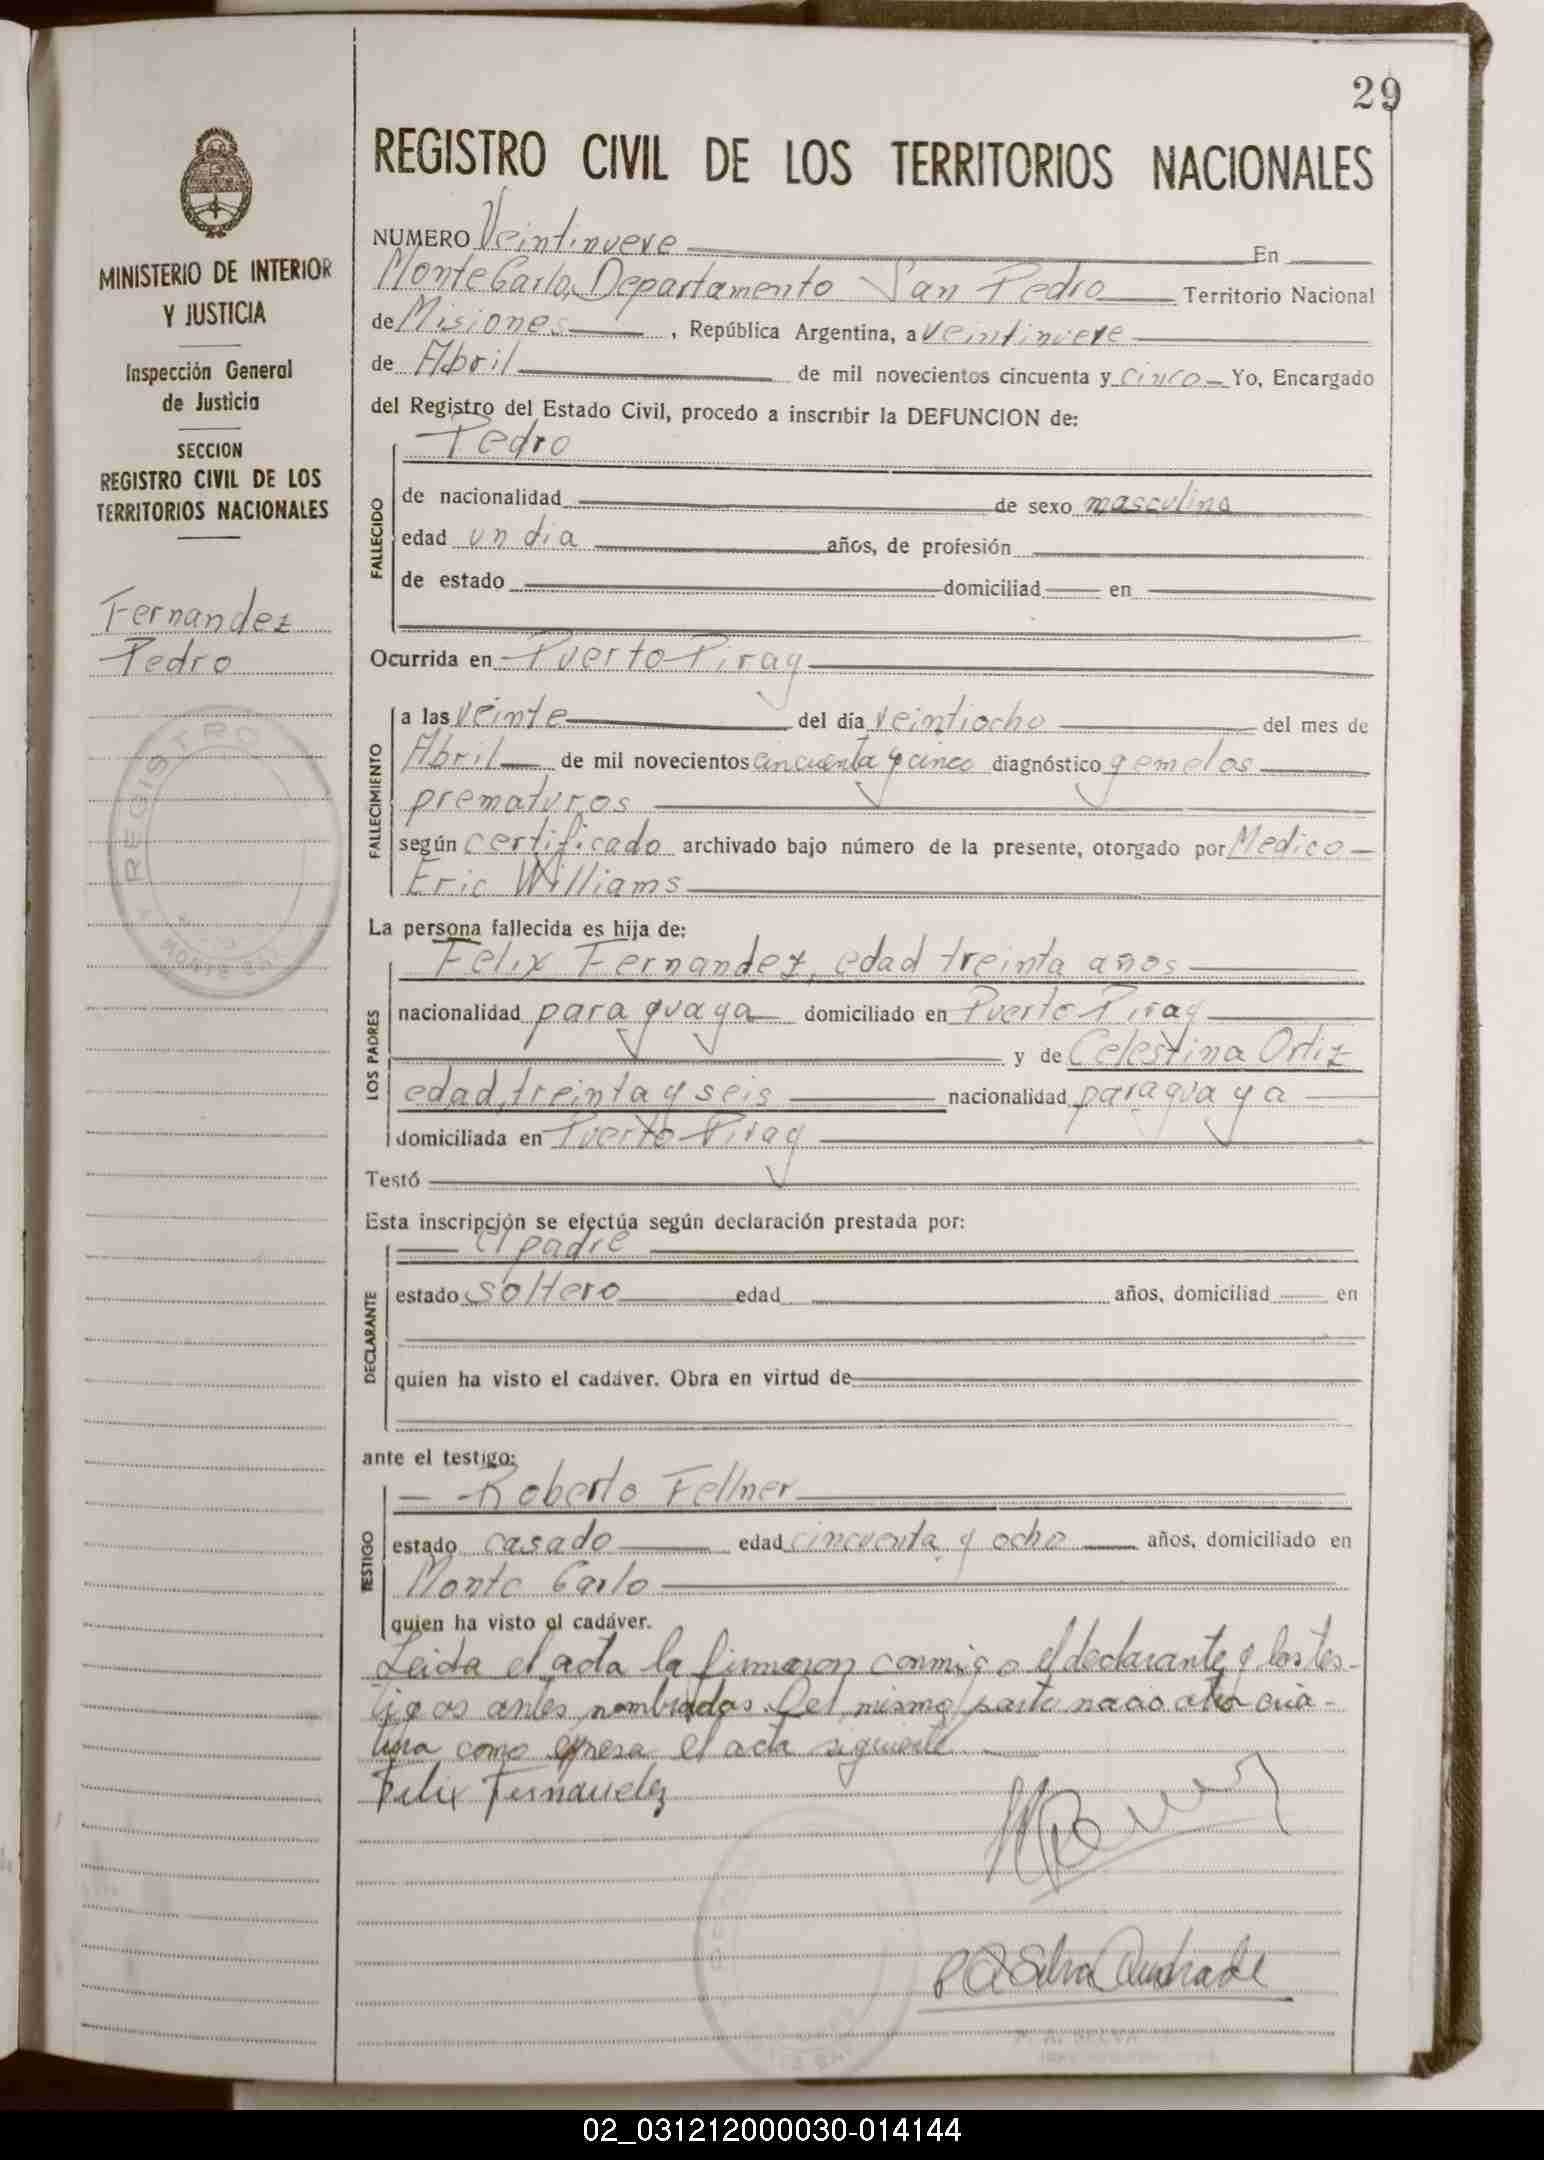 29
REGISTRO CIVIL DE LOS TERRITORIOS NACIONALES
MINISTERIO DE INTERIOR
Y JUSTICIA
Inspección General
de Justicia
SECCION
REGISTRO CIVIL DE LOS
TERRITORIOS NACIONALES
Fernandez
Pedro
REGISTRO
NUMERO Veintinueve En
MonteCarlo, Departamento San Pedro Territorio Nacional
de Misiones , República Argentina, a veintinueve
de Abril de mil novecientos cincuenta y cinco Yo, Encargado
del Registro del Estado Civil, procedo a inscribir la DEFUNCION de:
FALLECIDO
Pedro
de nacionalidad de sexo masculino
edad un dia años, de profesión
de estado domiciliad en
Ocurrida en Puerto Piray
FALLECIMIENTO
a las veinte del día veintiocho del mes de
Abril de mil novecientos cincuenta y cinco diagnóstico gemelos
prematuros
según certificado archivado bajo número de la presente, otorgado por Medico
Eric Williams
La persona fallecida es hija de:
LOS PADRES
Felix Fernandez, edad treinta años
nacionalidad paraguaya domiciliado en Puerto Piray
y de Celestina Ortiz
edad, treinta y seis nacionalidad paraguaya
domiciliada en Puerto Piray
Testó
Esta inscripción se efectúa según declaración prestada por:
DECLARANTE
el padre
estado soltero edad años, domiciliad en
quien ha visto el cadáver. Obra en virtud de
ante el testigo:
TESTIGO
Roberto Fellner
estado casado edad cincuenta y ocho años, domiciliado en
Monte Carlo
quien ha visto el cadáver.
Leida el acta la firmaron conmigo el declarante y los tes-
tigos antes nombrados. Del mismo parto nacio otra cria-
tura como expresa el acta siguiente
Felix Fernandez
P A Silva Andrade
02_031212000030-014144